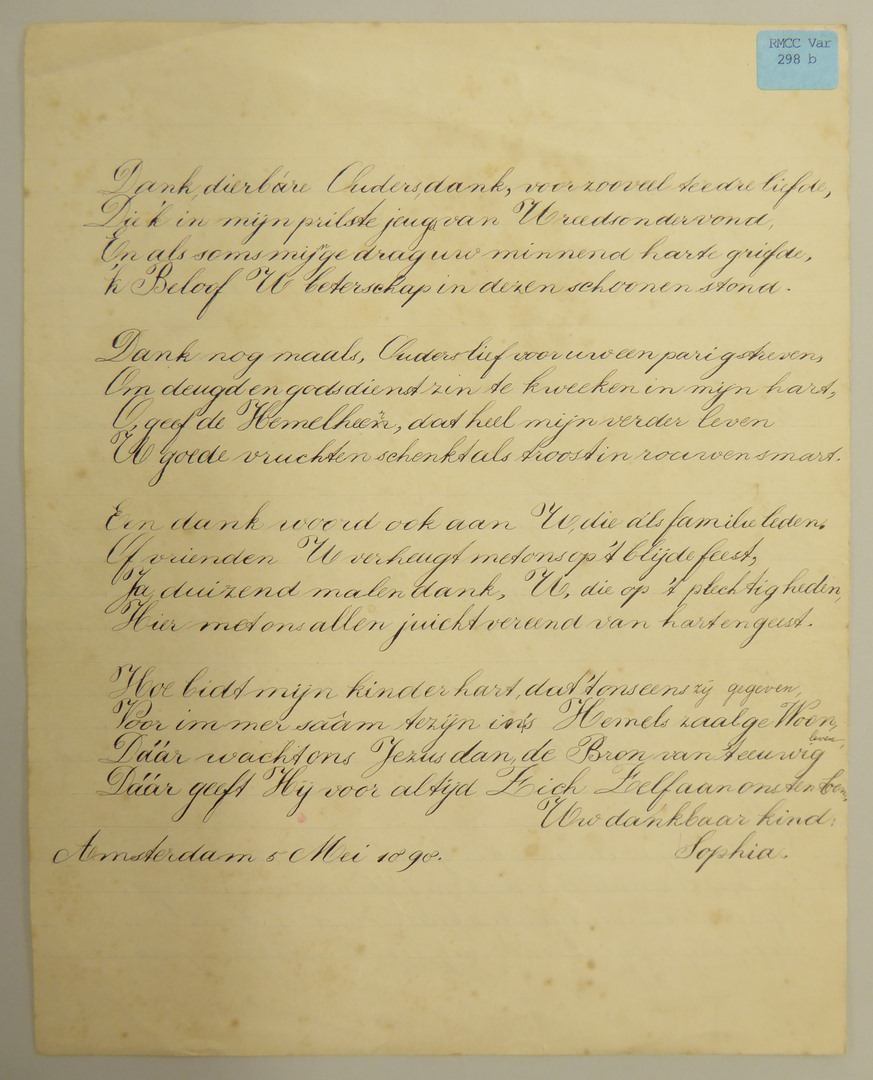 RMCC Var
298 b
Dank, dierbáre Ouders, dank, voor zooveel teedre liefde,
Die 'k in mijn prilste jeugd van U reeds ondervond,
En als soms mijn gedrag uw minnend harte griefde,
'k Beloof U beterschap in dezen schoonen stond.
Dank nog maals, Ouders lief voor uw een parig streven,
Om deugd en godsdienst zin te kweeken in mijn hart,
O, geef de Hemelheer, dat heel mijn verder leven
U goede vruchten schenkt als troost in rouw en smart.
Een dank woord ook aan U, die als familie leden,
Of vrienden U verheugt met ons op 't blijde feest,
Ja, duizend malen dank, U, die op 't plechtig heden,
Hier met ons allen juicht vereend van hart en geest.
Hoe bidt mijn kinder hart, dat 't ons eens zij gegeven,
Voor im mer saâm te zijn in 's Hemels zaalge Woon,
Dáár wacht ons Jezus dan, de Bron van 't eeuwig leven,
Dáár geeft Hij voor altijd Zich Zelf aan ons ten loon,
Uw dankbaar kind:
Sophia.
Amsterdam 5 Mei 1890.